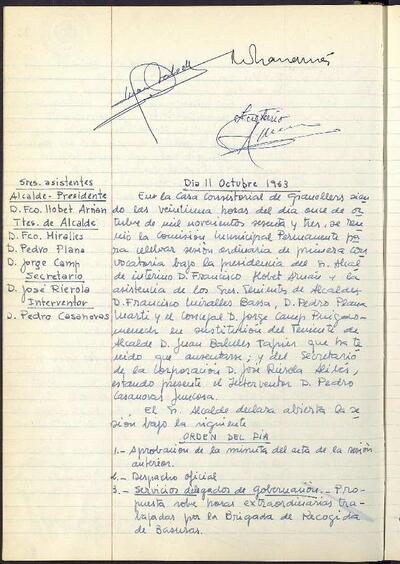 Sres. asistentes
Alcalde-Presidente
D. Fco. Llobet Arnán
Ttes. de Alcalde
D. Fco. Miralles
D. Pedro Plana
D. Jorge Camp
Secretario
D. José Rierola
Interventor
D. Pedro Casanovas
Dia 11 Octubre 1963
En la Casa Consistorial de Granollers, sien-
do las veintiuna horas del dia once de oc-
tubre de mil novecientos sesenta y tres, se reu-
nió la Comisión Municipal Permanente pa-
ra celebrar sesión ordinaria de primera con-
vocatoria bajo la presidencia del Sr. Alcal-
de interino D. Francisco Llobet Arnán y la
asistencia de los Sres. Tenientes de Alcalde,
D. Francisco Miralles Bassa, D. Pedro Plana
Martí y el concejal D. Jorge Camp Puigdo-
menech en sustitución del Teniente de
Alcalde D. Juan que ha te-
nido que ausentarse; y del Secretario
de la Corporación D. José Rierola
estando presente el Interventor D. Pedro
Casanovas
El Sr. Alcalde declara abierta la se-
sión bajo la siguiente
ORDEN DEL DIA
1.- Aprobación de la minuta del acta de la sesión
anterior.
2.- Despacho oficial
3.- Servicios delegados de gobernación.- Pro-
puesta sobre horas extraordinarias tra-
bajadas por la Brigada de Recogida
de Basuras.